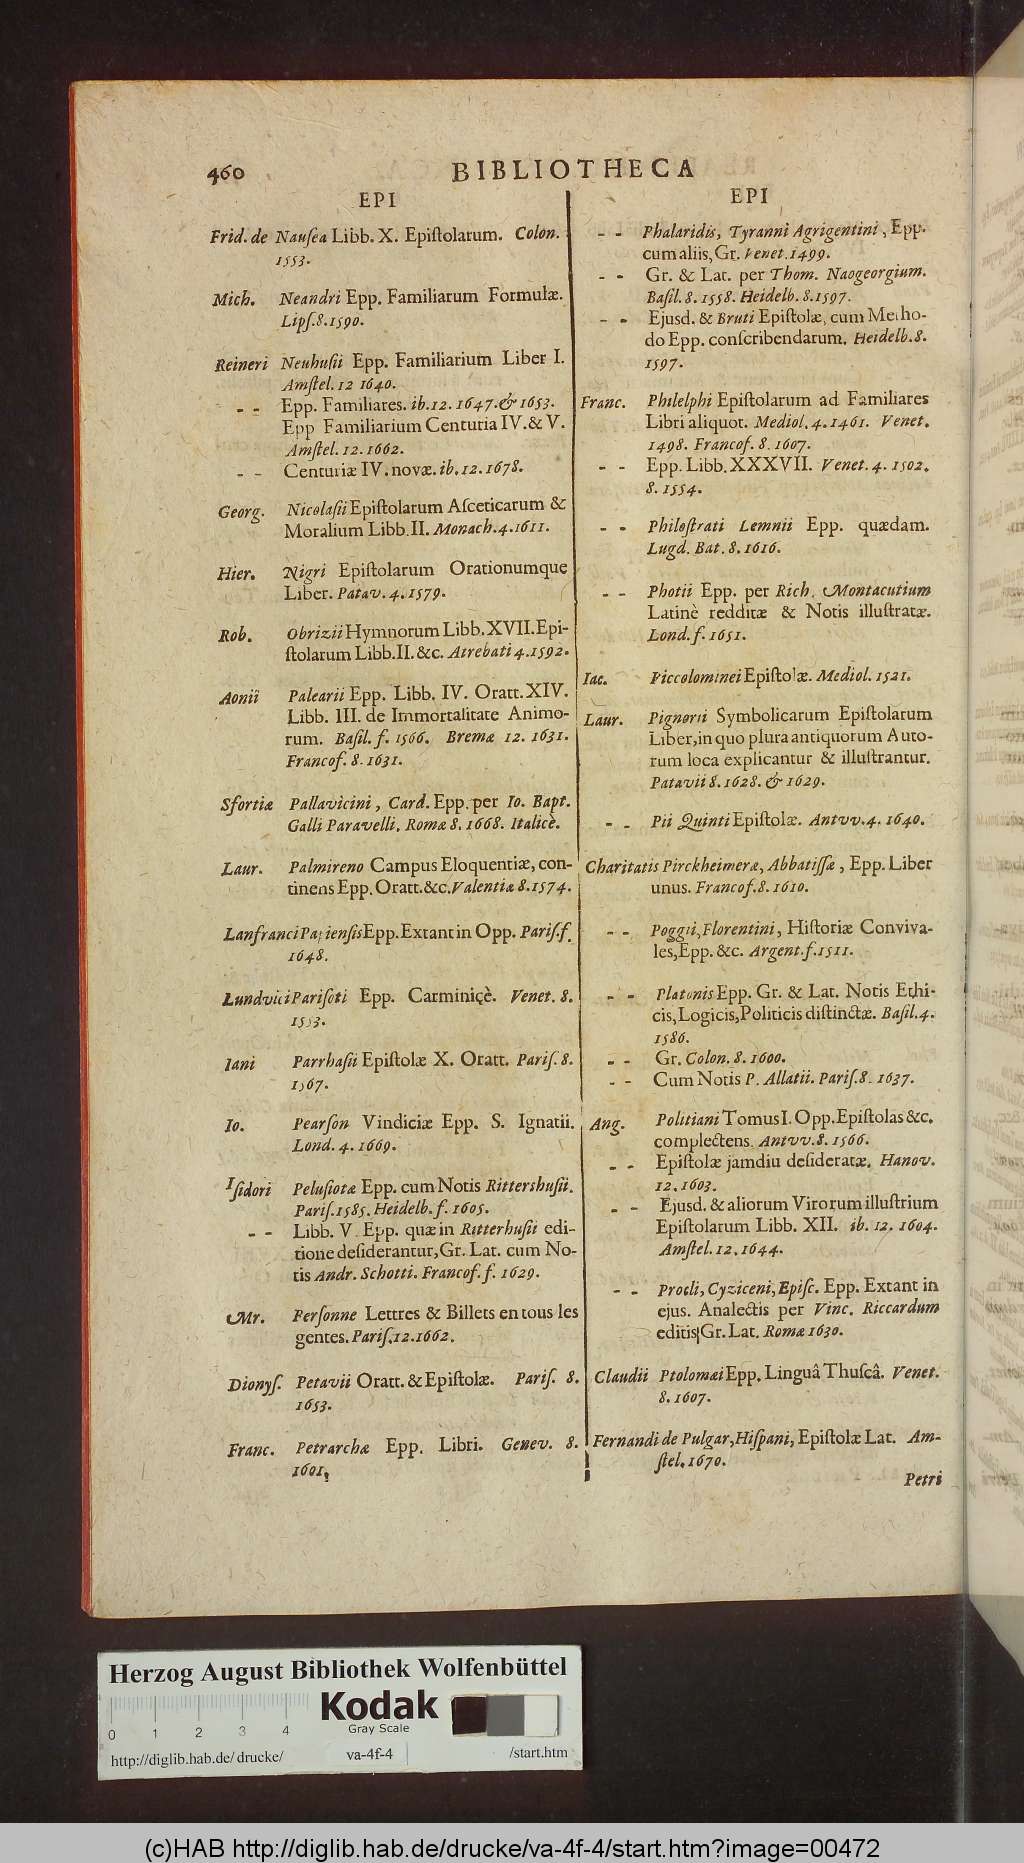 460
BIBLIOTHECA
EPI
Frid. de Nauſea Libb. X. Epiſtolarum. Colon.
1553.
Mich. Neandri Epp. Familiarum Formulæ.
Lipſ.8.1590.
Reineri Neuhuſii Epp. Familiarium Liber I.
Amſtel. 12 1640.
- - Epp. Familiares. ib. 12. 1647. & 1653.
Epp Familiarium Centuria IV. & V.
Amſtel. 12. 1662.
- - Centuriæ IV. novæ. ib. 12. 1678.
Georg. Nicolaſii Epiſtolarum Aſceticarum &
Moralium Libb. II. Monach. 4. 1611.
Hier. Nigri Epiſtolarum Orationumque
Liber. Patav. 4. 1579.
Rob. Obrizii Hymnorum Libb. XVII. Epi-
ſtolarum Libb. II. &c. Atrebati 4. 1592.
Aonii Palearii Epp. Libb. IV. Oratt. XIV.
Libb. III. de Immortalitate Animo-
rum. Baſil. f. 1566. Bremæ 12. 1631.
Francof. 8. 1631.
Sfortiæ Pallavicini, Card. Epp. per Io. Bapt.
Galli Paravelli. Romæ 8. 1668. Italicè.
Laur. Palmireno Campus Eloquentiæ, con-
tinens Epp. Oratt. &c. Valentiæ 8. 1574.
Lanfranci Papienſis Epp. Extant in Opp. Pariſ. f.
1648.
Lundvici Pariſoti Epp. Carminiçè. Venet. 8.
1553.
Iani Parrhaſii Epiſtolæ X. Oratt. Pariſ. 8.
1567.
Io. Pearſon Vindiciæ Epp. S. Ignatii.
Lond. 4. 1669.
Iſidori Peluſiotæ Epp. cum Notis Rittershuſii.
Pariſ. 1585. Heidelb. f. 1605.
- - Libb. V. Epp. quæ in Ritterhuſii edi-
tione deſiderantur, Gr. Lat. cum No-
tis Andr. Schotti. Francof. f. 1629.
Mr. Perſonne Lettres & Billets en tous les
gentes. Pariſ. 12. 1662.
Dionyſ. Petavii Oratt. & Epiſtolæ. Pariſ. 8.
1653.
Franc. Petrarchæ Epp. Libri. Genev. 8.
1601.
EPI
- - Phalaridis, Tyranni Agrigentini, Epp.
cum aliis, Gr. Venet. 1499.
- - Gr. & Lat. per Thom. Naogeorgium.
Baſil. 8. 1558. Heidelb. 8. 1597.
- - Ejusd. & Bruti Epiſtolæ, cum Metho-
do Epp. conſcribendarum. Heidelb. 8.
1597.
Franc. Philelphi Epiſtolarum ad Familiares
Libri aliquot. Mediol. 4. 1461. Venet.
1498. Francof. 8. 1607.
- - Epp. Libb. XXXVII. Venet. 4. 1502.
8. 1554.
- - Philoſtrati Lemnii Epp. quædam.
Lugd. Bat. 8. 1616.
- - Photii Epp. per Rich. Montacutium
Latinè redditæ & Notis illuſtratæ.
Lond. f. 1651.
Iac. Piccolominei Epiſtolæ. Mediol. 1521.
Laur. Pignorii Symbolicarum Epiſtolarum
Liber, in quo plura antiquorum Auto-
rum loca explicantur & illuſtrantur.
Patavii 8. 1628. & 1629.
- - Pii Quinti Epiſtolæ. Antvv. 4. 1640.
Charitatis Pirckheimeræ, Abbatiſſæ, Epp. Liber
unus. Francof. 8. 1610.
- - Poggii, Florentini, Hiſtoriæ Conviva-
les, Epp. &c. Argent. f. 1511.
- - Platonis Epp. Gr. & Lat. Notis Ethi-
cis, Logicis, Politicis diſtinctæ. Baſil. 4.
1586.
- - Gr. Colon. 8. 1600.
- - Cum Notis P. Allatii. Pariſ. 8. 1637.
Ang. Politiani Tomus I. Opp. Epiſtolas &c.
complectens. Antvv. 8. 1566.
- - Epiſtolæ jamdiu deſideratæ. Hanov.
12. 1603.
- - Ejusd. & aliorum Virorum illuſtrium
Epiſtolarum Libb. XII. ib. 12. 1604.
Amſtel. 12. 1644.
- - Procli, Cyziceni, Epiſc. Epp. Extant in
ejus. Analectis per Vinc. Riccardum
editis Gr. Lat. Romæ 1630.
Claudii Ptolomæi Epp. Linguâ Thuſcâ. Venet.
8. 1607.
Fernandi de Pulgar, Hiſpani, Epiſtolæ Lat. Am-
ſtel. 1670.
Petri
Herzog August Bibliothek Wolfenbüttel
Kodak
Gray Scale
0 1 2 3 4
http://diglib.hab.de/drucke/ va-4f-4 /start.htm
(c)HAB http://diglib.hab.de/drucke/va-4f-4/start.htm?image=00472